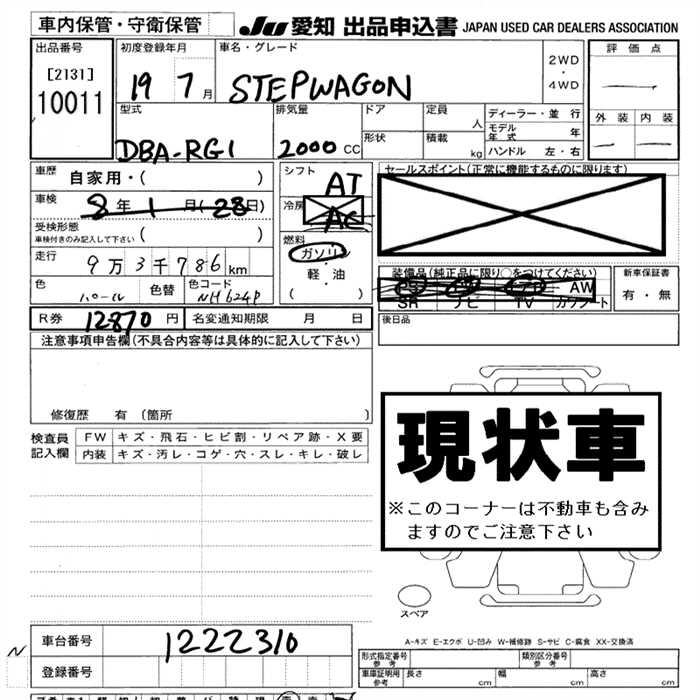 車内保管・守衛保管
JU 愛知 出品申込書 JAPAN USED CAR DEALERS ASSOCIATION
出品番号
[2131]
10011
初度登録年月
19 7 月
車名・グレード
STEPWAGON
2WD
・
4WD
評価点
外装 内装
型式
DBA-RG1
排気量
2000 CC
ドア
形状
定員
人
積載
kg
ディーラー・並行
モデル年式 年
ハンドル 左・右
車歴
自家用・( )
車検
8年1月(28日)
受検形態
車検付きのみ記入して下さい ( )
走行
9万3千786km
色
パール
色替
色コード
NH624P
シフト
AT
冷房
AC
燃料
ガソリン
・
軽・油
( )
セールスポイント(正常に機能するものに限ります)
装備品(純正品に限り○をつけてください)
AW
SR ナビ TV カワシート
新車保証書
有・無
R券 12870 円
名変通知期限 月 日
後日品
注意事項申告欄(不具合内容等は具体的に記入して下さい)
修復歴 有(箇所 )
検査員
記入欄
FW キズ・飛石・ヒビ割・リペア跡・X要
内装 キズ・汚レ・コゲ・穴・スレ・キレ・破レ
現状車
※このコーナーは不動車も含み
ますのでご注意下さい
スペア
A-キズ E-エクボ U-凹み W-補修跡 S-サビ C-腐食 XX-交換済
N
車台番号 1222310
登録番号
形式指定番号
参考
類別区分番号
参考
車庫証明用
参考
長さ cm
幅 cm
高さ cm